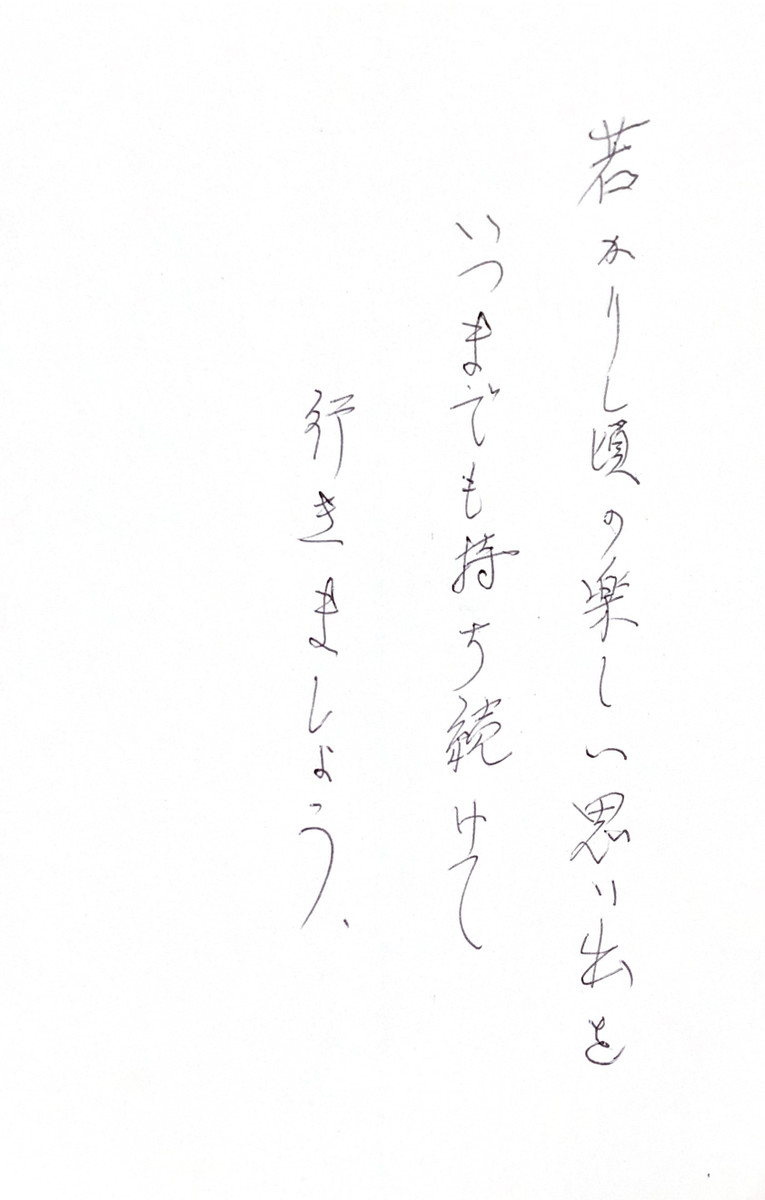 若かりし頃の楽しい思い出を
いつまでも持ち続けて
行きましょう、